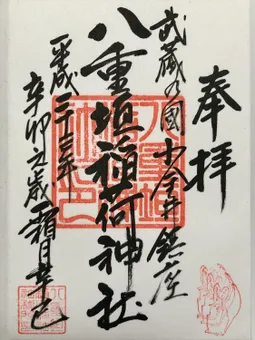 奉拝
武蔵の國小金井鎮座
八重垣稲荷神社
平成二十三年
辛卯之歳霜月辛巳